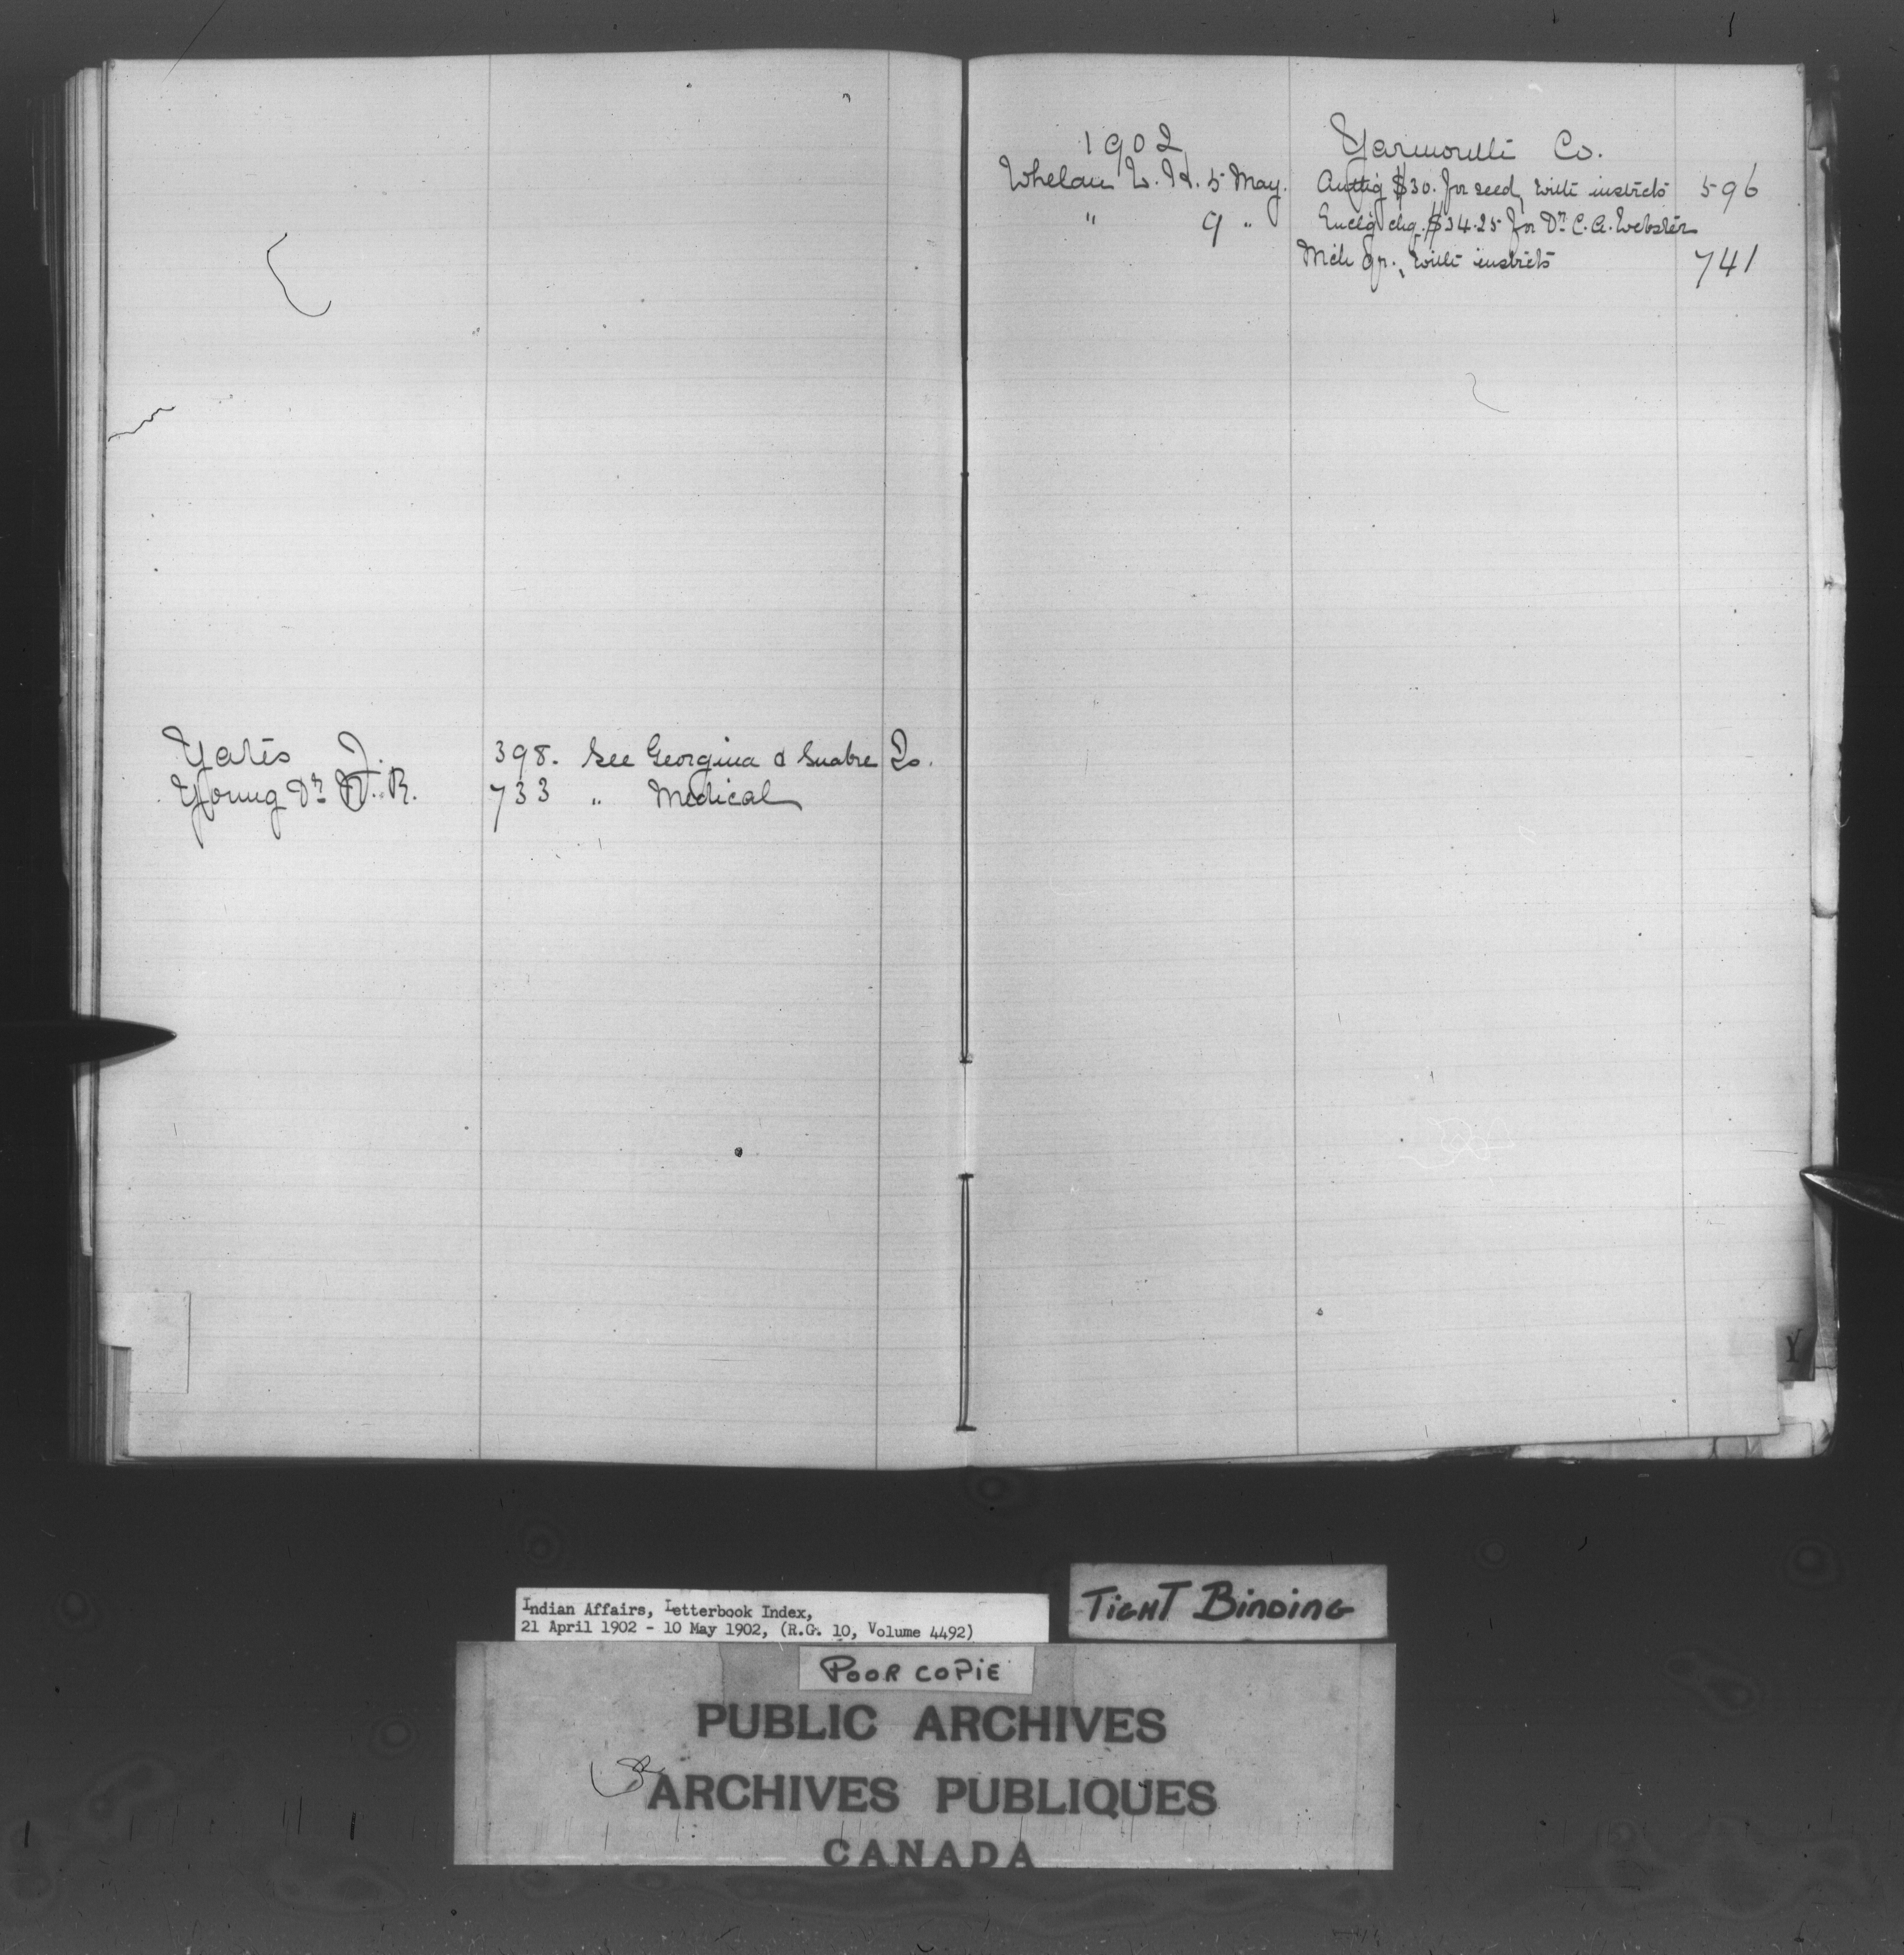 Yates J. 398. See Georgina & Snake Is.
Young Dr R. 733 " Medical
1902 Yarmouth Co.
Whelan W. H. 5 May. Authg $30. for seed, with instrcts 596
" 9 " Enclg chq. $34.25 for Dr. C. A. Webster
Mch qr., with instrcts 741
Y
Indian Affairs, Letterbook Index,
21 April 1902 - 10 May 1902, (R.G. 10, Volume 4492)
TIGHT BINDING
POOR COPIE
PUBLIC ARCHIVES
ARCHIVES PUBLIQUES
CANADA